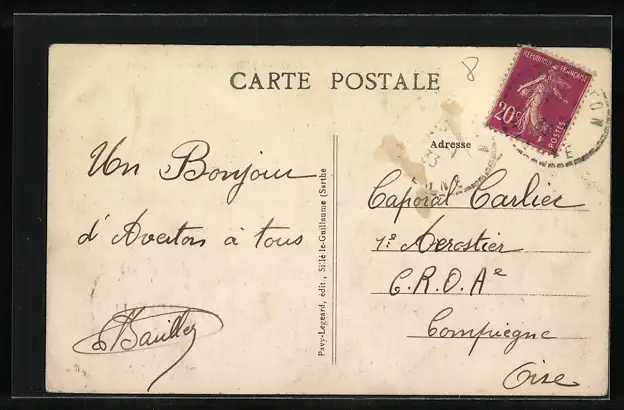 8
CARTE POSTALE
REPUBLIQUE FRANÇAISE
20c
POSTES
Adresse
Un Bonjour
d'Averton à tous
Pavy-Legeard, édit., Sillé-le-Guillaume (Sarthe
Caporal Carlier
1e Aerostier
C.R.O.Ae
Compiegne
Oise